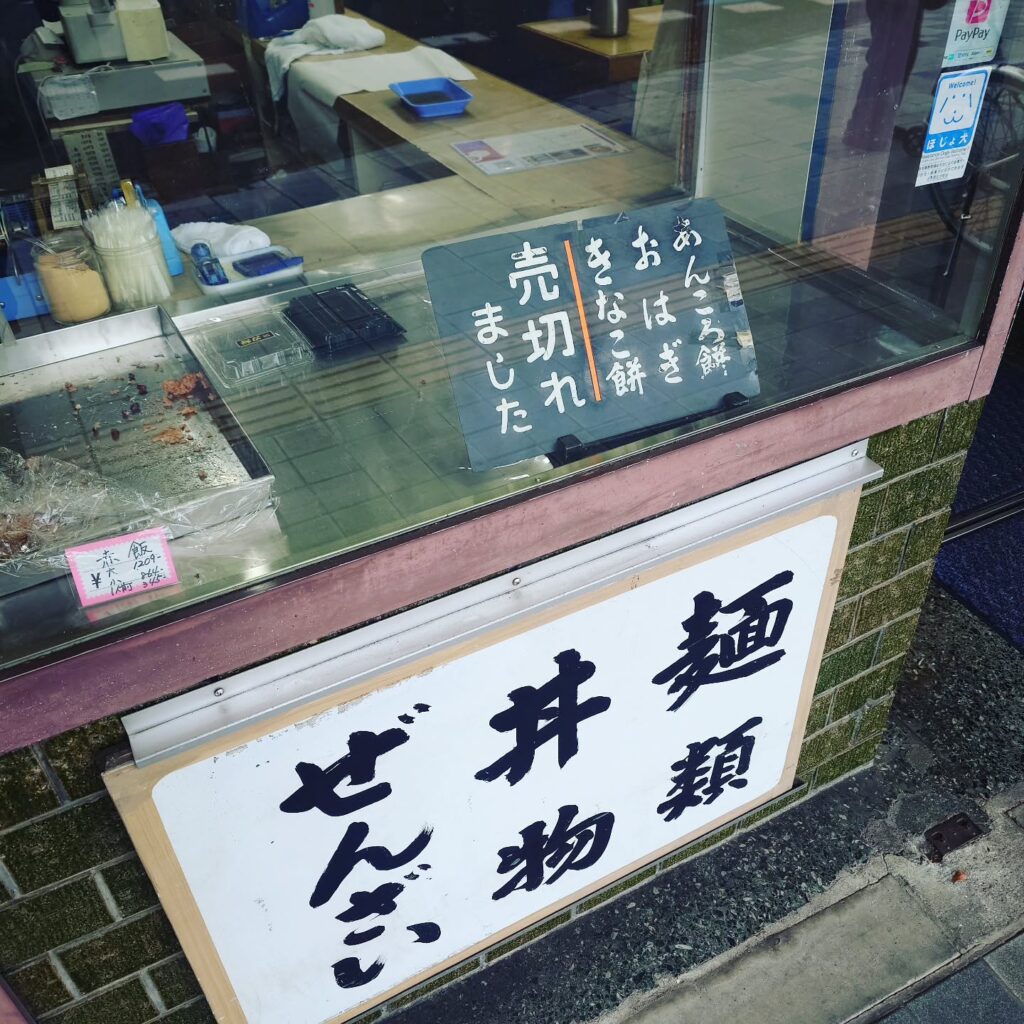 あんころ餅
おはぎ
きなこ餅
売切れ
ました
麺類
丼物
ぜんざい
赤飯
大 1209-
¥
864-
345-
PayPay
Welcome!
ほじょ犬